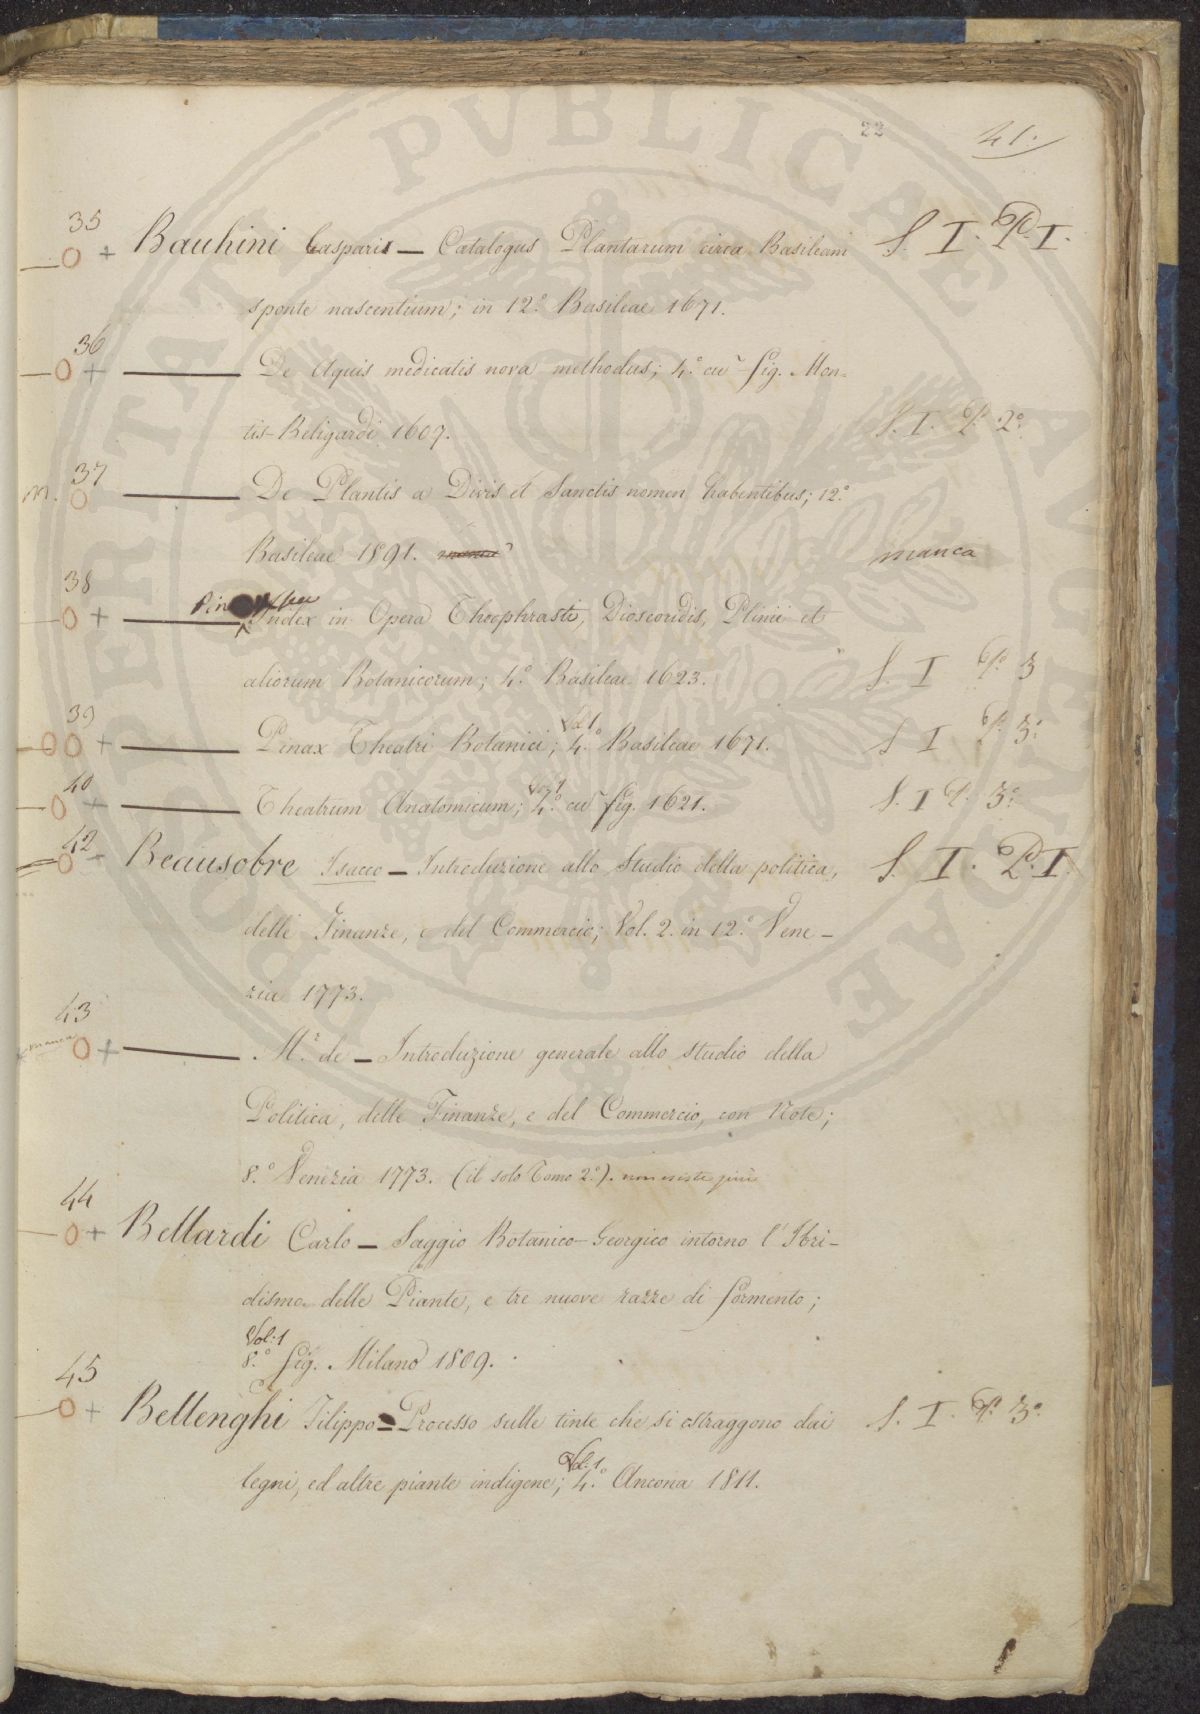 22
41.
35
O + Bauhini Casparis — Catalogus Plantarum circa Basileam S. I. P. I.
sponte nascentium; in 12.° Basileae 1671.
36
O + ——— De Aquis medicatis nova methodus; 4.° cũ fig. Mon=
tis-Beligardi 1607. S. I. P. 2°
37
m. O ——— De Plantis a Divis et Sanctis nomen habentibus; 12.°
Basileae 1891. manca
38
O + ——— Index in Opera Theophrasti, Dioscoridis, Plinii et
aliorum Botanicorum; 4.° Basileae 1623. S. I P.° 3
39
O O + ——— Pinax Theatri Botanici; Vol 1 4.° Basileae 1671. S I P. 3.°
40
O + ——— Theatrum Anatomicum; Vol 1 4.° cũ fig. 1621. S. I P. 3.°
42
O - Beausobre Isacco — Introduzione allo Studio della politica, S. I. P. I
delle Finanze, e del Commercio; Vol. 2. in 12.° Vene-
zia 1773.
43
manca O + ——— M.r de — Introduzione generale allo studio della
Politica, delle Finanze, e del Commercio, con Note;
8.° Venezia 1773. (il solo Tomo 2.°). non esiste più
44
O + Bellardi Carlo — Saggio Botanico-Georgico intorno l'Ibri-
dismo delle Piante, e tre nuove razze di formento;
Vol. 1
8.° fig. Milano 1809.
45
O + Bellenghi Filippo — Processo sulle tinte che si estraggono dai S. I. P. 3.°
legni, ed altre piante indigene; Vol. 1 4.° Ancona 1811.
PROSPERITATI PVBLICAE AVGENDAE